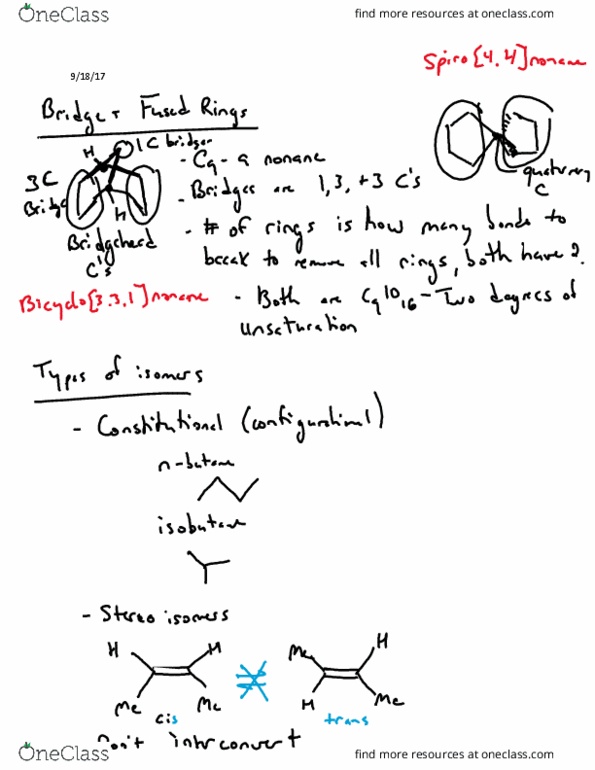 OneClass
find more resources at oneclass.com
Spiro[4,4]nonane
9/18/17
Bridge + Fused Rings
H
1C bridge
- C9 - a nonane
quaternary
C
3C
Bridge
- Bridges are 1, 3, + 3 C's
H
Bridgehead
C's
- # of rings is how many bonds to
break to remove all rings, both have 2.
Bicyclo[3.3.1]nonane
- Both are C9 H16 - Two degrees of
unsaturation
Types of isomers
- Constitutional (configurational)
n-butane
isobutane
- Stereo isomers
H H
Me Me
cis
Me H
H Me
trans
Don't interconvert
OneClass
find more resources at oneclass.com